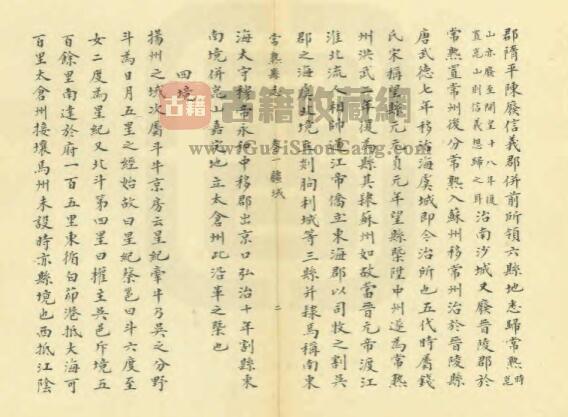 郡隋平陳廢信義郡併前所領六縣地悉歸常熟時崑
山亦廢至開皇十八年復置崑山則信義想歸之耳治南沙城又廢晉陵郡於
常熟置常州後分常熟入蘇州移常州治於晉陵縣
唐武德七年移治海虞城即今治所也五代時屬錢
氏宋稱望縣元元貞元年望縣槩陞中州遂為常熟
州洪武二年復為縣其隸蘇州如故當晉元帝渡江
淮北流人相帥過江帝僑立東海郡以司牧之割吳
郡之海虞北境立郯朐利城等三縣并隸焉稱南東
常熟縣志 卷一疆域 二
海太守穆帝永和中移郡出京口弘治十年割縣東
南境併崑山嘉定地立太倉州此沿革之槩也
四境
揚州之域次屬斗牛京房云星紀牽牛乃吳之分野
斗為日月五星之經始故曰星紀蔡邕曰斗六度至
女二度為星紀又北斗第四星曰權主吳邑斥境五
百餘里南達於府一百五里東循白茆港抵大海可
百里太倉州接壤焉州未設時亦縣境也西抵江陰
古籍收藏网
www.GuJiShouCang.com